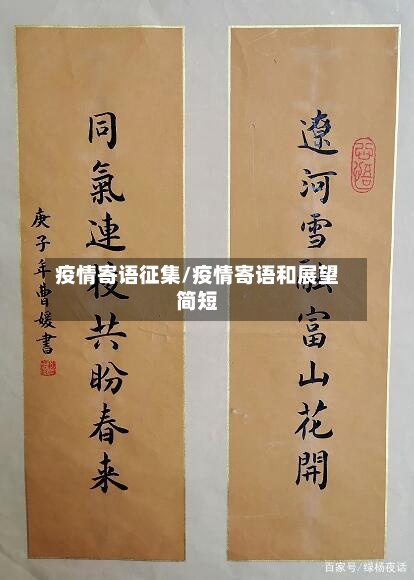 遼河雪融富山花開
同氣連枝共盼春来
庚子年曹媛書
疫情寄语征集/疫情寄语和展望
简短
百家号/绿杨夜话